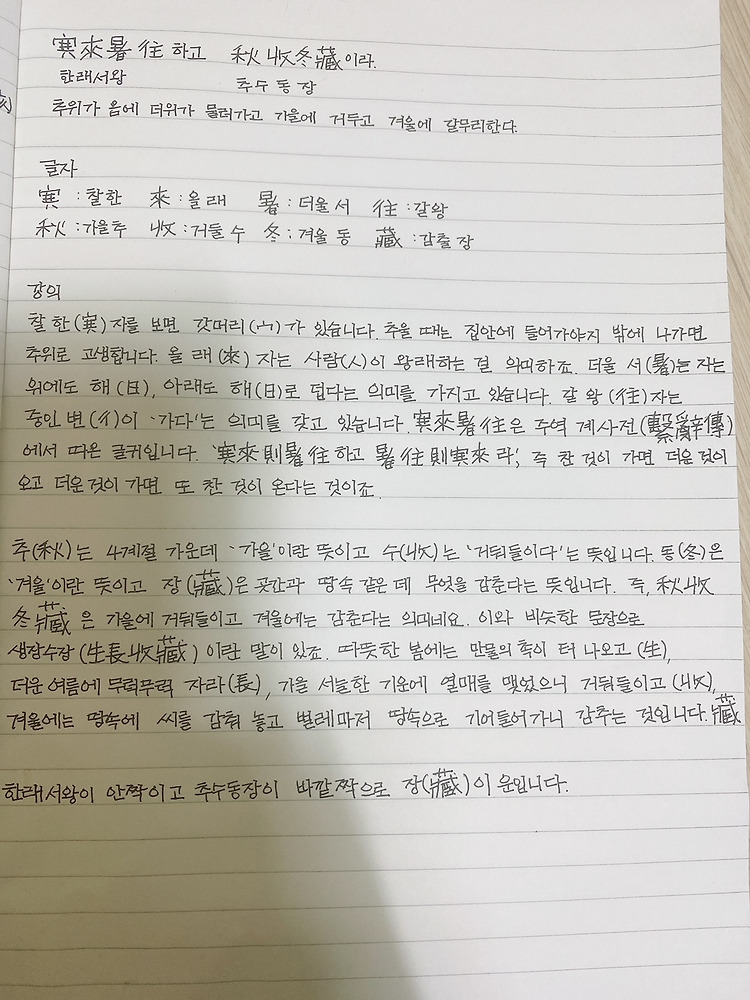 寒來暑往하고 秋收冬藏이라.
한래서왕 추수동장
추위가 옴에 더위가 물러가고 가을에 거두고 겨울에 갈무리한다.
글자
寒 : 찰한 來 : 올래 暑 : 더울서 往 : 갈왕
秋 : 가을추 收 : 거둘수 冬 : 겨울동 藏 : 감출장
강의
찰 한(寒)자를 보면 갓머리(宀)가 있습니다. 추울 때는 집안에 들어가야지 밖에 나가면
추위로 고생합니다. 올 래(來) 자는 사람(人)이 왕래하는 걸 의미하죠. 더울 서(暑)는 자는
위에도 해(日), 아래도 해(日)로 덥다는 의미를 가지고 있습니다. 갈 왕(往)자는
중인 변(彳)이 '가다'는 의미를 갖고 있습니다. 寒來暑往은 주역 계사전(繫辭傳)
에서 따온 글귀입니다. '寒來則暑往하고 暑往則寒來라', 즉 찬 것이 가면 더운 것이
오고 더운것이 가면 또 찬 것이 온다는 것이죠.
추(秋)는 4계절 가운데 '가을'이란 뜻이고 수(收)는 '거둬들이다'는 뜻입니다. 동(冬)은
'겨울'이란 뜻이고 장(藏)은 곳간과 땅속 같은 데 무엇을 감춘다는 뜻입니다. 즉, 秋收
冬藏은 가을에 거둬들이고 겨울에는 감춘다는 의미네요. 이와 비슷한 문장으로
생장수장(生長收藏)이란 말이 있죠. 따뜻한 봄에는 만물의 촉이 터 나오고(生),
더운 여름에 무럭무럭 자라(長), 가을 서늘한 기운에 열매를 맺었으니 거둬들이고(收),
겨울에는 땅속에 씨를 감춰 놓고 벌레마저 땅속으로 기어들어가니 감추는 것입니다. 藏
한래서왕이 안짝이고 추수동장이 바깥짝으로 장(藏)이 운입니다.